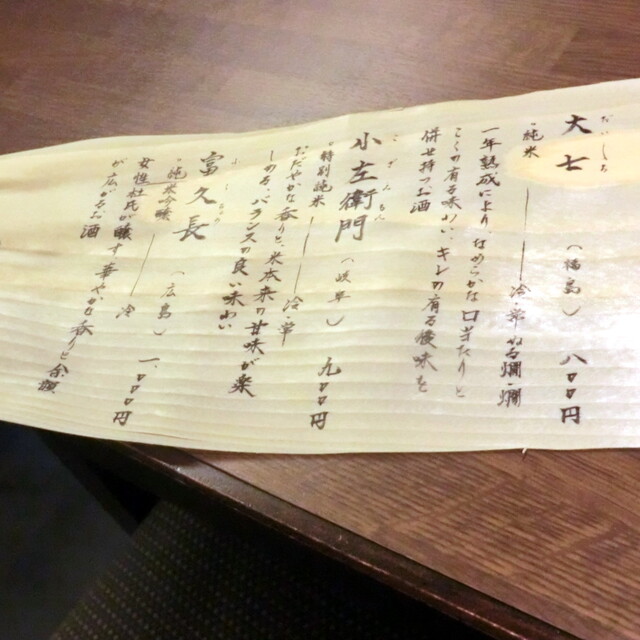 だいしち
大七 (福島) 八〇〇円
・純米 ― 冷・常・ぬる燗・燗
一年熟成により なめらかな口当たりと
こくの有る味わい キレの有る後味を
併せ持つ酒
小左衛門 (岐阜) 九〇〇円
・特別純米 ― 冷・常
おだやかな香りと 米本来の甘味が楽
しめる バランスの良い味わい
富久長 (広島) 一、〇〇〇円
・純米吟醸 ― 冷
女性杜氏が醸す 華やかな香りと余韻
が広がる酒